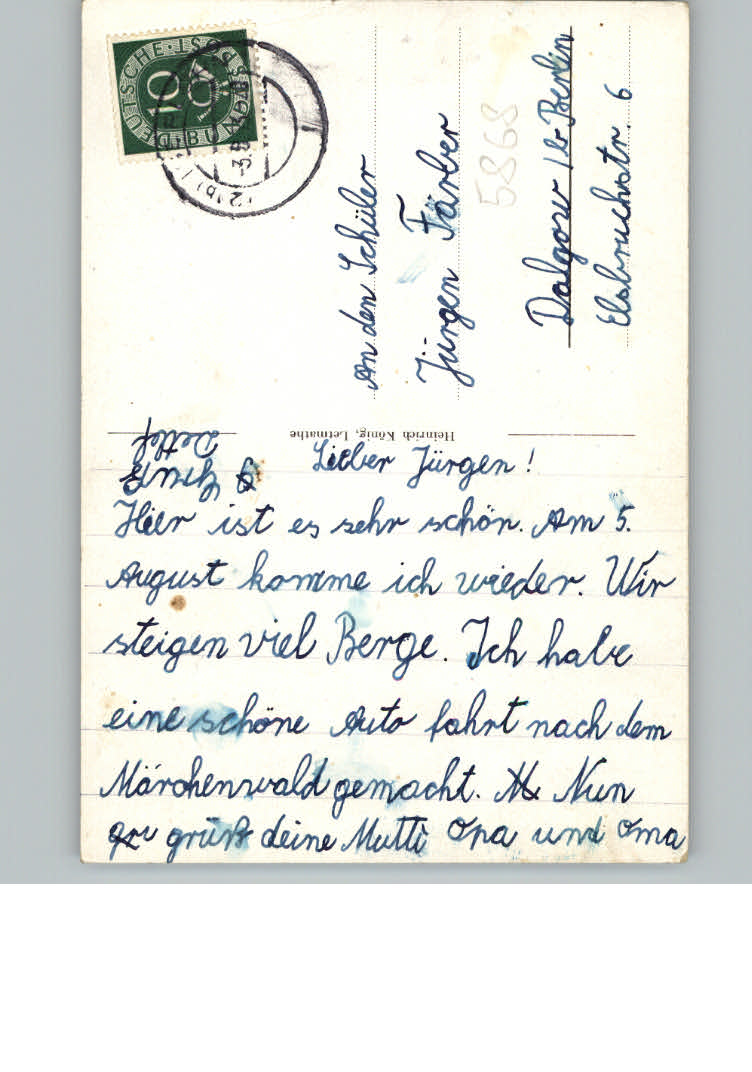 Lieber Jürgen!
Hier ist es sehr schön. Am 5.
August komme ich wieder. Wir
steigen viel Berge. Ich habe
eine schöne Auto fahrt nach dem
Märchenwald gemacht. Nun
grüß deine Mutti Opa und Oma
Detlef
An den Schüler
Jürgen Färber
Dalgow /b Berlin
Elsbruchstr. 6
5868
Heinrich König, Letmathe
DEUTSCHE POST
10